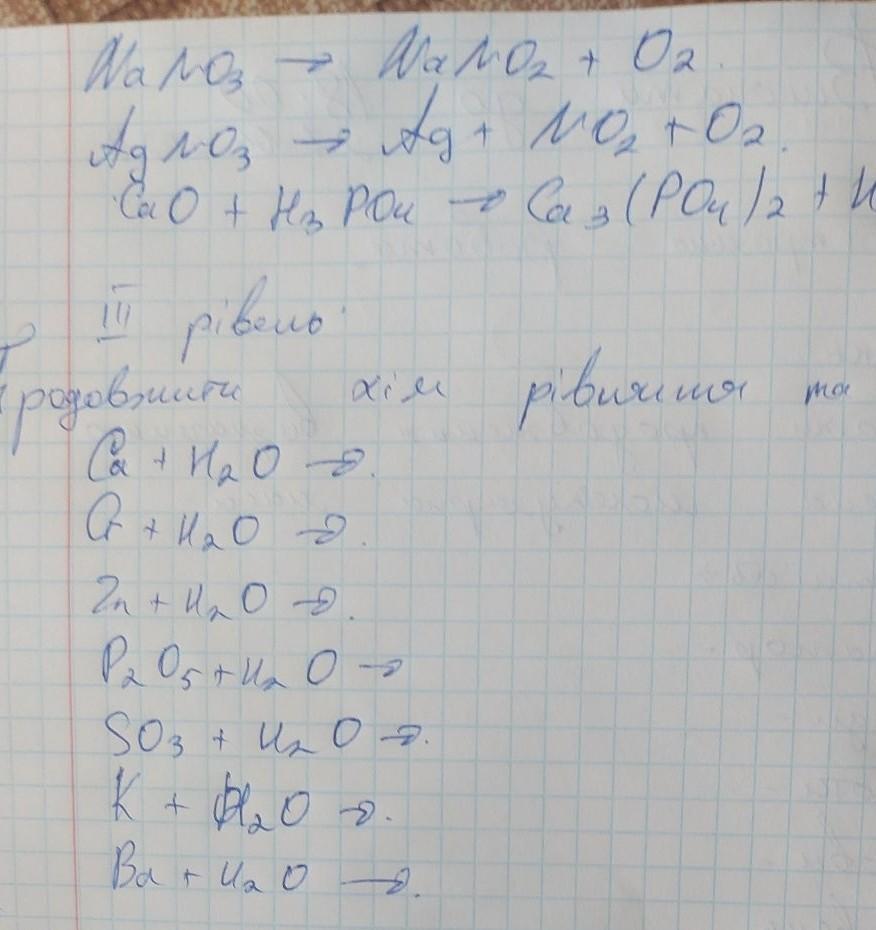 NaNO₃ → NaNO₂ + O₂.
AgNO₃ → Ag + NO₂ + O₂.
CaO + H₃PO₄ → Ca₃(PO₄)₂ + H
III рівень
Продовжити хім рівняння та
Ca + H₂O →.
Cr + H₂O →.
Zn + H₂O →.
P₂O₅ + H₂O →
SO₃ + H₂O →.
K + H₂O →.
Ba + H₂O →.